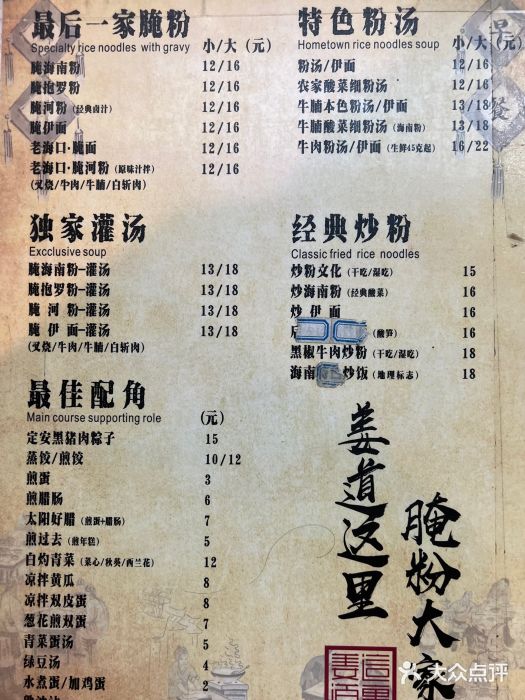 最后一家腌粉
Specialty rice noodles with gravy 小/大(元)
腌海南粉 12/16
腌抱罗粉 12/16
腌河粉(经典卤汁) 12/16
腌伊面 12/16
老海口·腌面 12/16
老海口·腌河粉(原味汁拌) 12/16
(叉烧/牛肉/牛腩/白斩肉)
独家灌汤
Excclusive soup
腌海南粉-灌汤 13/18
腌抱罗粉-灌汤 13/18
腌河粉-灌汤 13/18
腌伊面-灌汤 13/18
(叉烧/牛肉/牛腩/白斩肉)
最佳配角
Main course supporting role (元)
定安黑猪肉粽子 15
蒸饺/煎饺 10/12
煎蛋 3
煎腊肠 6
太阳好腊(煎蛋+腊肠) 7
煎过去(煎年糕) 5
白灼青菜(菜心/秋葵/西兰花) 12
凉拌黄瓜 8
凉拌双皮蛋 8
葱花煎双蛋 7
青菜蛋汤 5
绿豆汤 4
水煮蛋/加鸡蛋 2
特色粉汤
Hometown rice noodles soup 小/大(元)
粉汤/伊面 12/16
农家酸菜细粉汤 12/16
牛腩本色粉汤/伊面 13/18
牛腩酸菜细粉汤(海南粉) 13/18
牛肉粉汤/伊面(生鲜45克起) 16/22
经典炒粉
Classic fried rice noodles
炒粉文化(干吃/湿吃) 15
炒海南粉(经典酸菜) 16
炒伊面 16
(酸笋) 18
黑椒牛肉炒粉(干吃/湿吃) 18
海南 炒饭(地理标志) 18
姜道这里
腌粉大家
大众点评